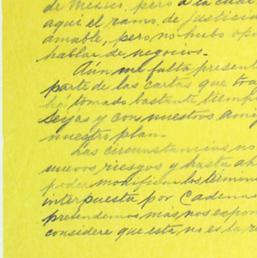 de México, pero a la cual
aquí el ramo de justicia
amable, pero no hubo opo
hablar de negocios.
Aún me falta present
parte de las cartas que tra
he tomado bastante tiempo
leyas y con nuestros ami
nuestro plan.
Las circunstancias no
nuevos riesgos y hasta ah
poder modificar los términ
interpuesta por Cadena
pretendemos mas, nos espon
considere que esta, no es la r